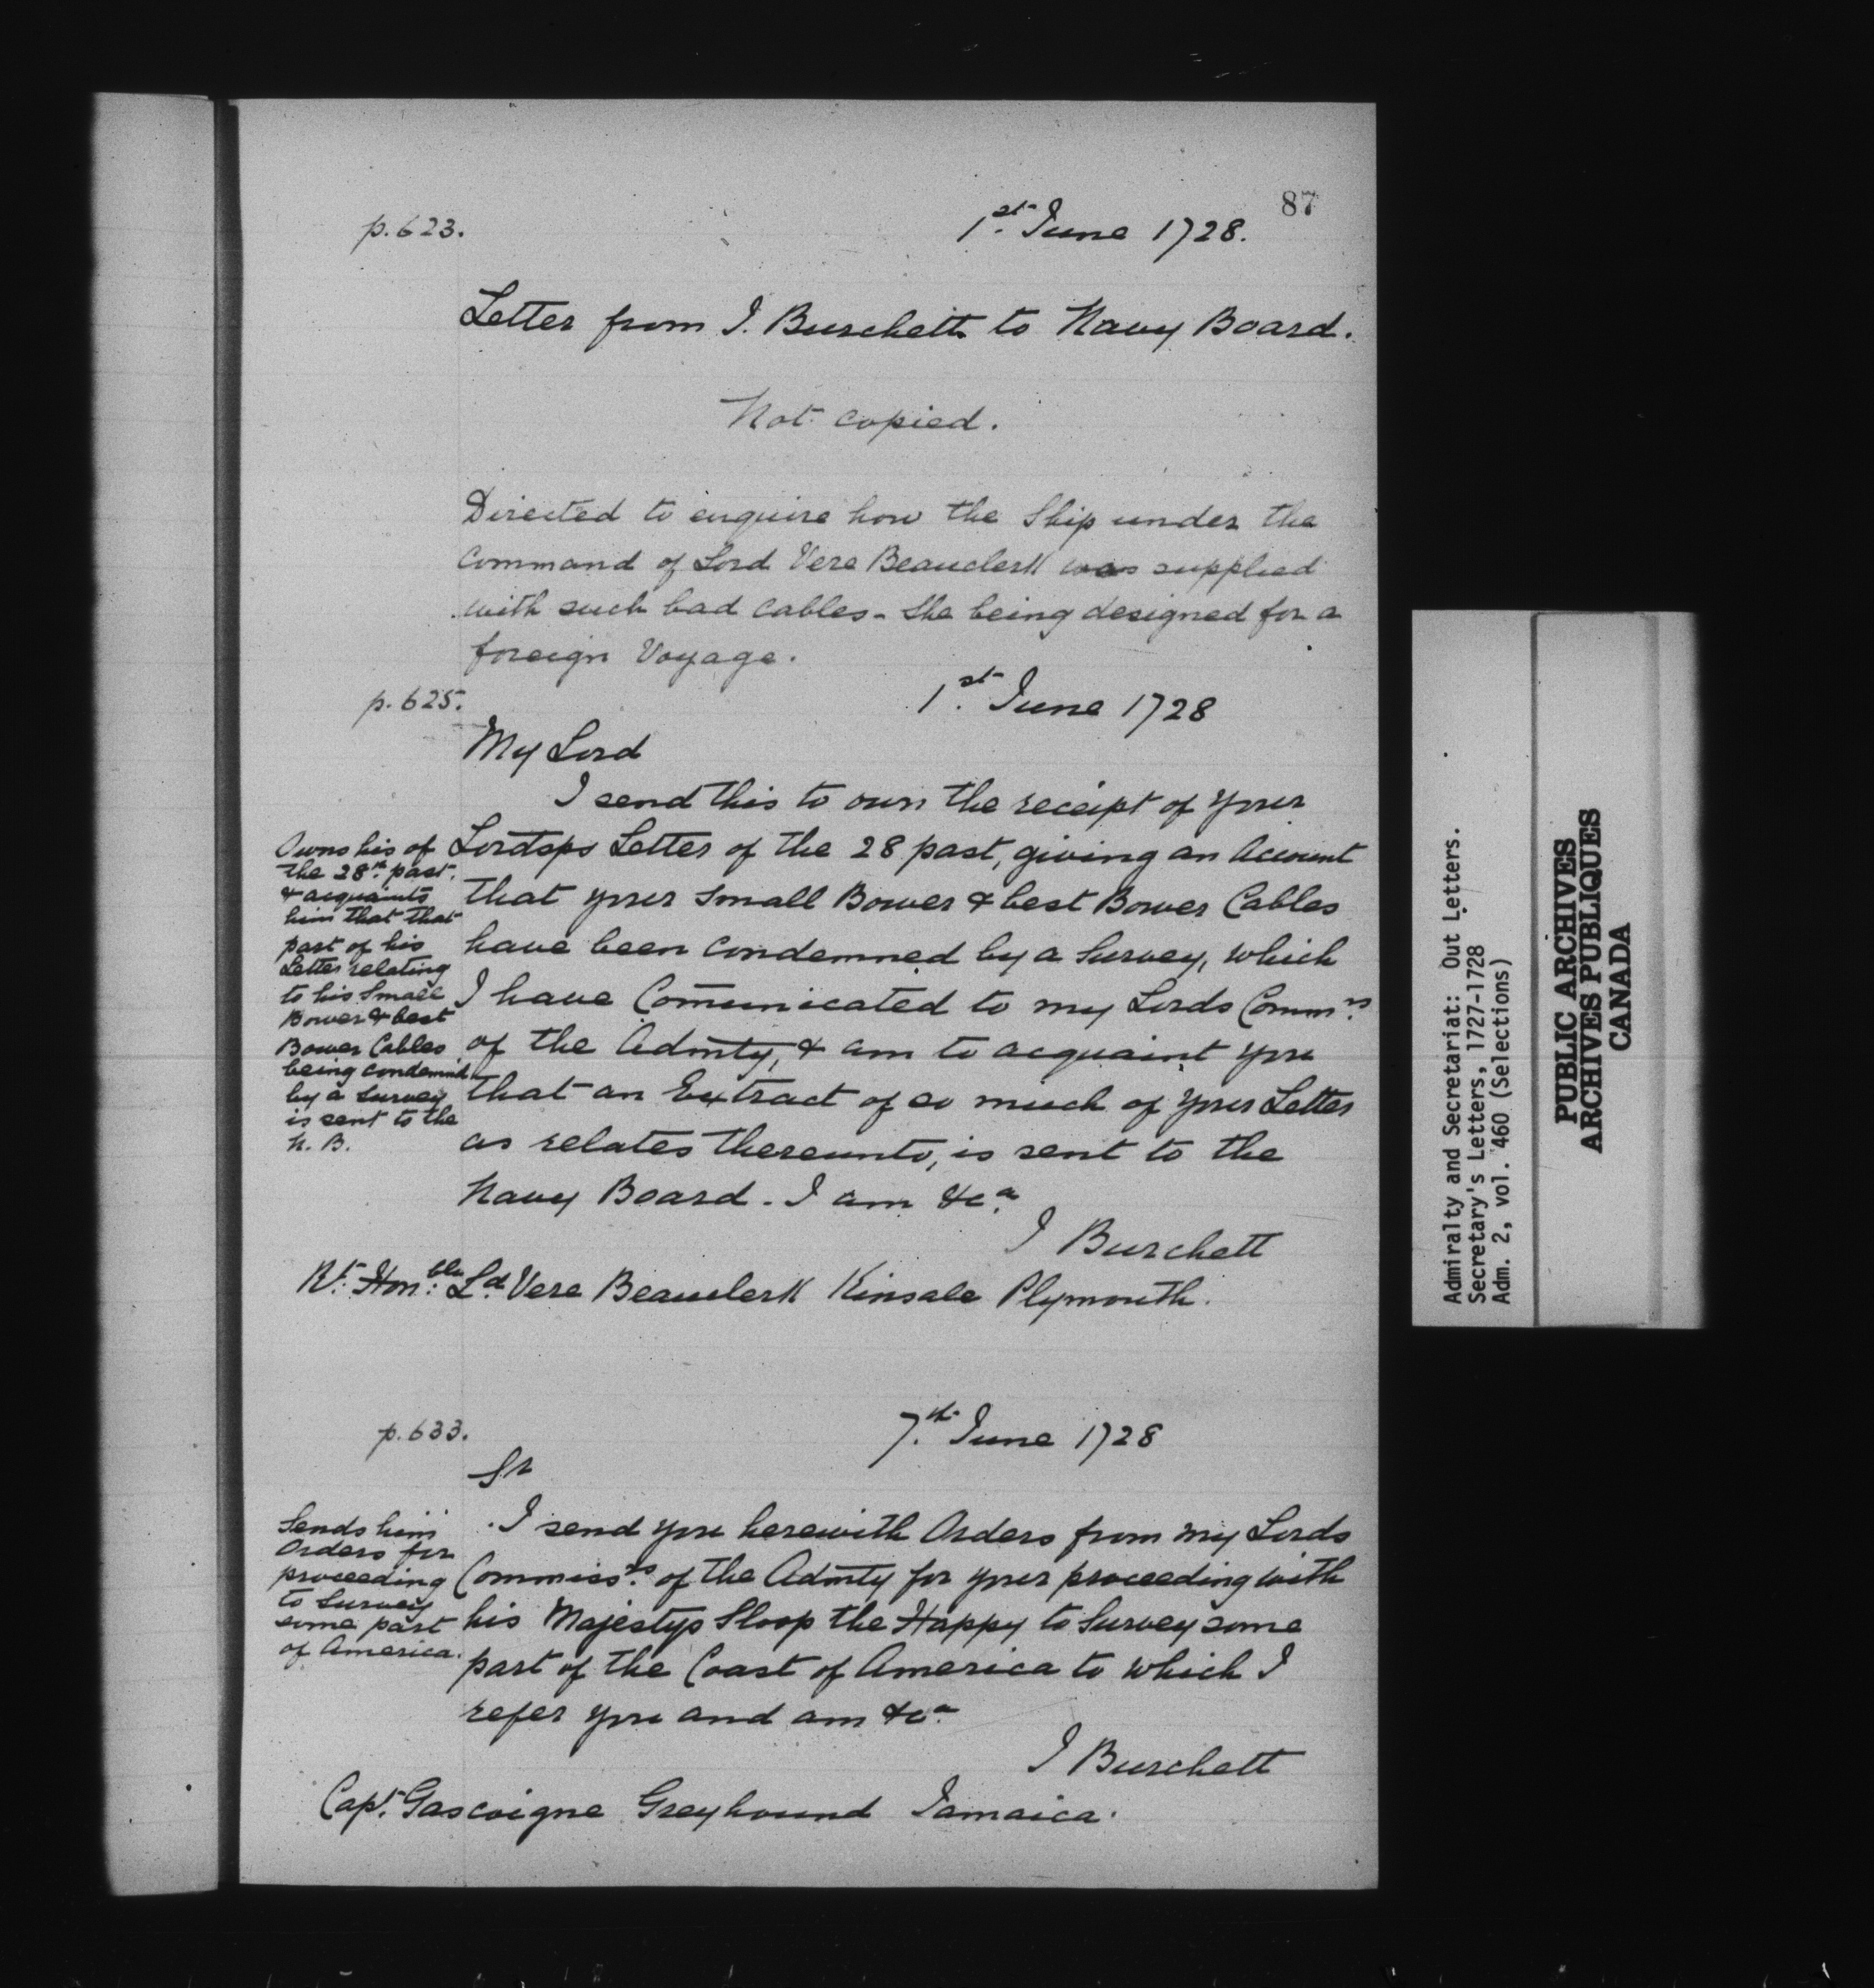 87
p. 623.
1st. June 1728.
Letter from J. Burchett to Navy Board.
Not copied.
Directed to enquire how the Ship under the
Command of Lord Vere Beauclerk was supplied
with such bad Cables - She being designed for a
foreign Voyage.
p. 625.
1st. June 1728
My Lord
I send this to own the receipt of your
Lordsps Letter of the 28 past, giving an Account
that your Small Bower & best Bower Cables
have been Condemned by a Survey, which
I have Comunicated to my Lords Commrs.
of the Admty, & am to acquaint you
that an Extract of so much of your Letter
as relates thereunto, is sent to the
Navy Board. I am &ca.
J Burchett
Rt. Honble: Ld. Vere Beauclerk Kinsale Plymouth.
Owns his of
the 28th. past.
& acquaints
him that that
part of his
Letter relating
to his Small
Bower & best
Bower Cables
being condemnd.
by a Survey
is sent to the
N. B.
p. 633.
7th. June 1728
Sr
I send you herewith Orders from my Lords
Commissrs. of the Admty for your proceeding with
his Majestys Sloop the Happy to Survey some
part of the Coast of America to which I
refer you and am &ca
J Burchett
Capt. Gascoigne Greyhound Jamaica.
Sends him
Orders for
proceeding
to Survey
some part
of America.
Admiralty and Secretariat: Out Letters.
Secretary's Letters, 1727-1728
Adm. 2, vol. 460 (Selections)
PUBLIC ARCHIVES
ARCHIVES PUBLIQUES
CANADA